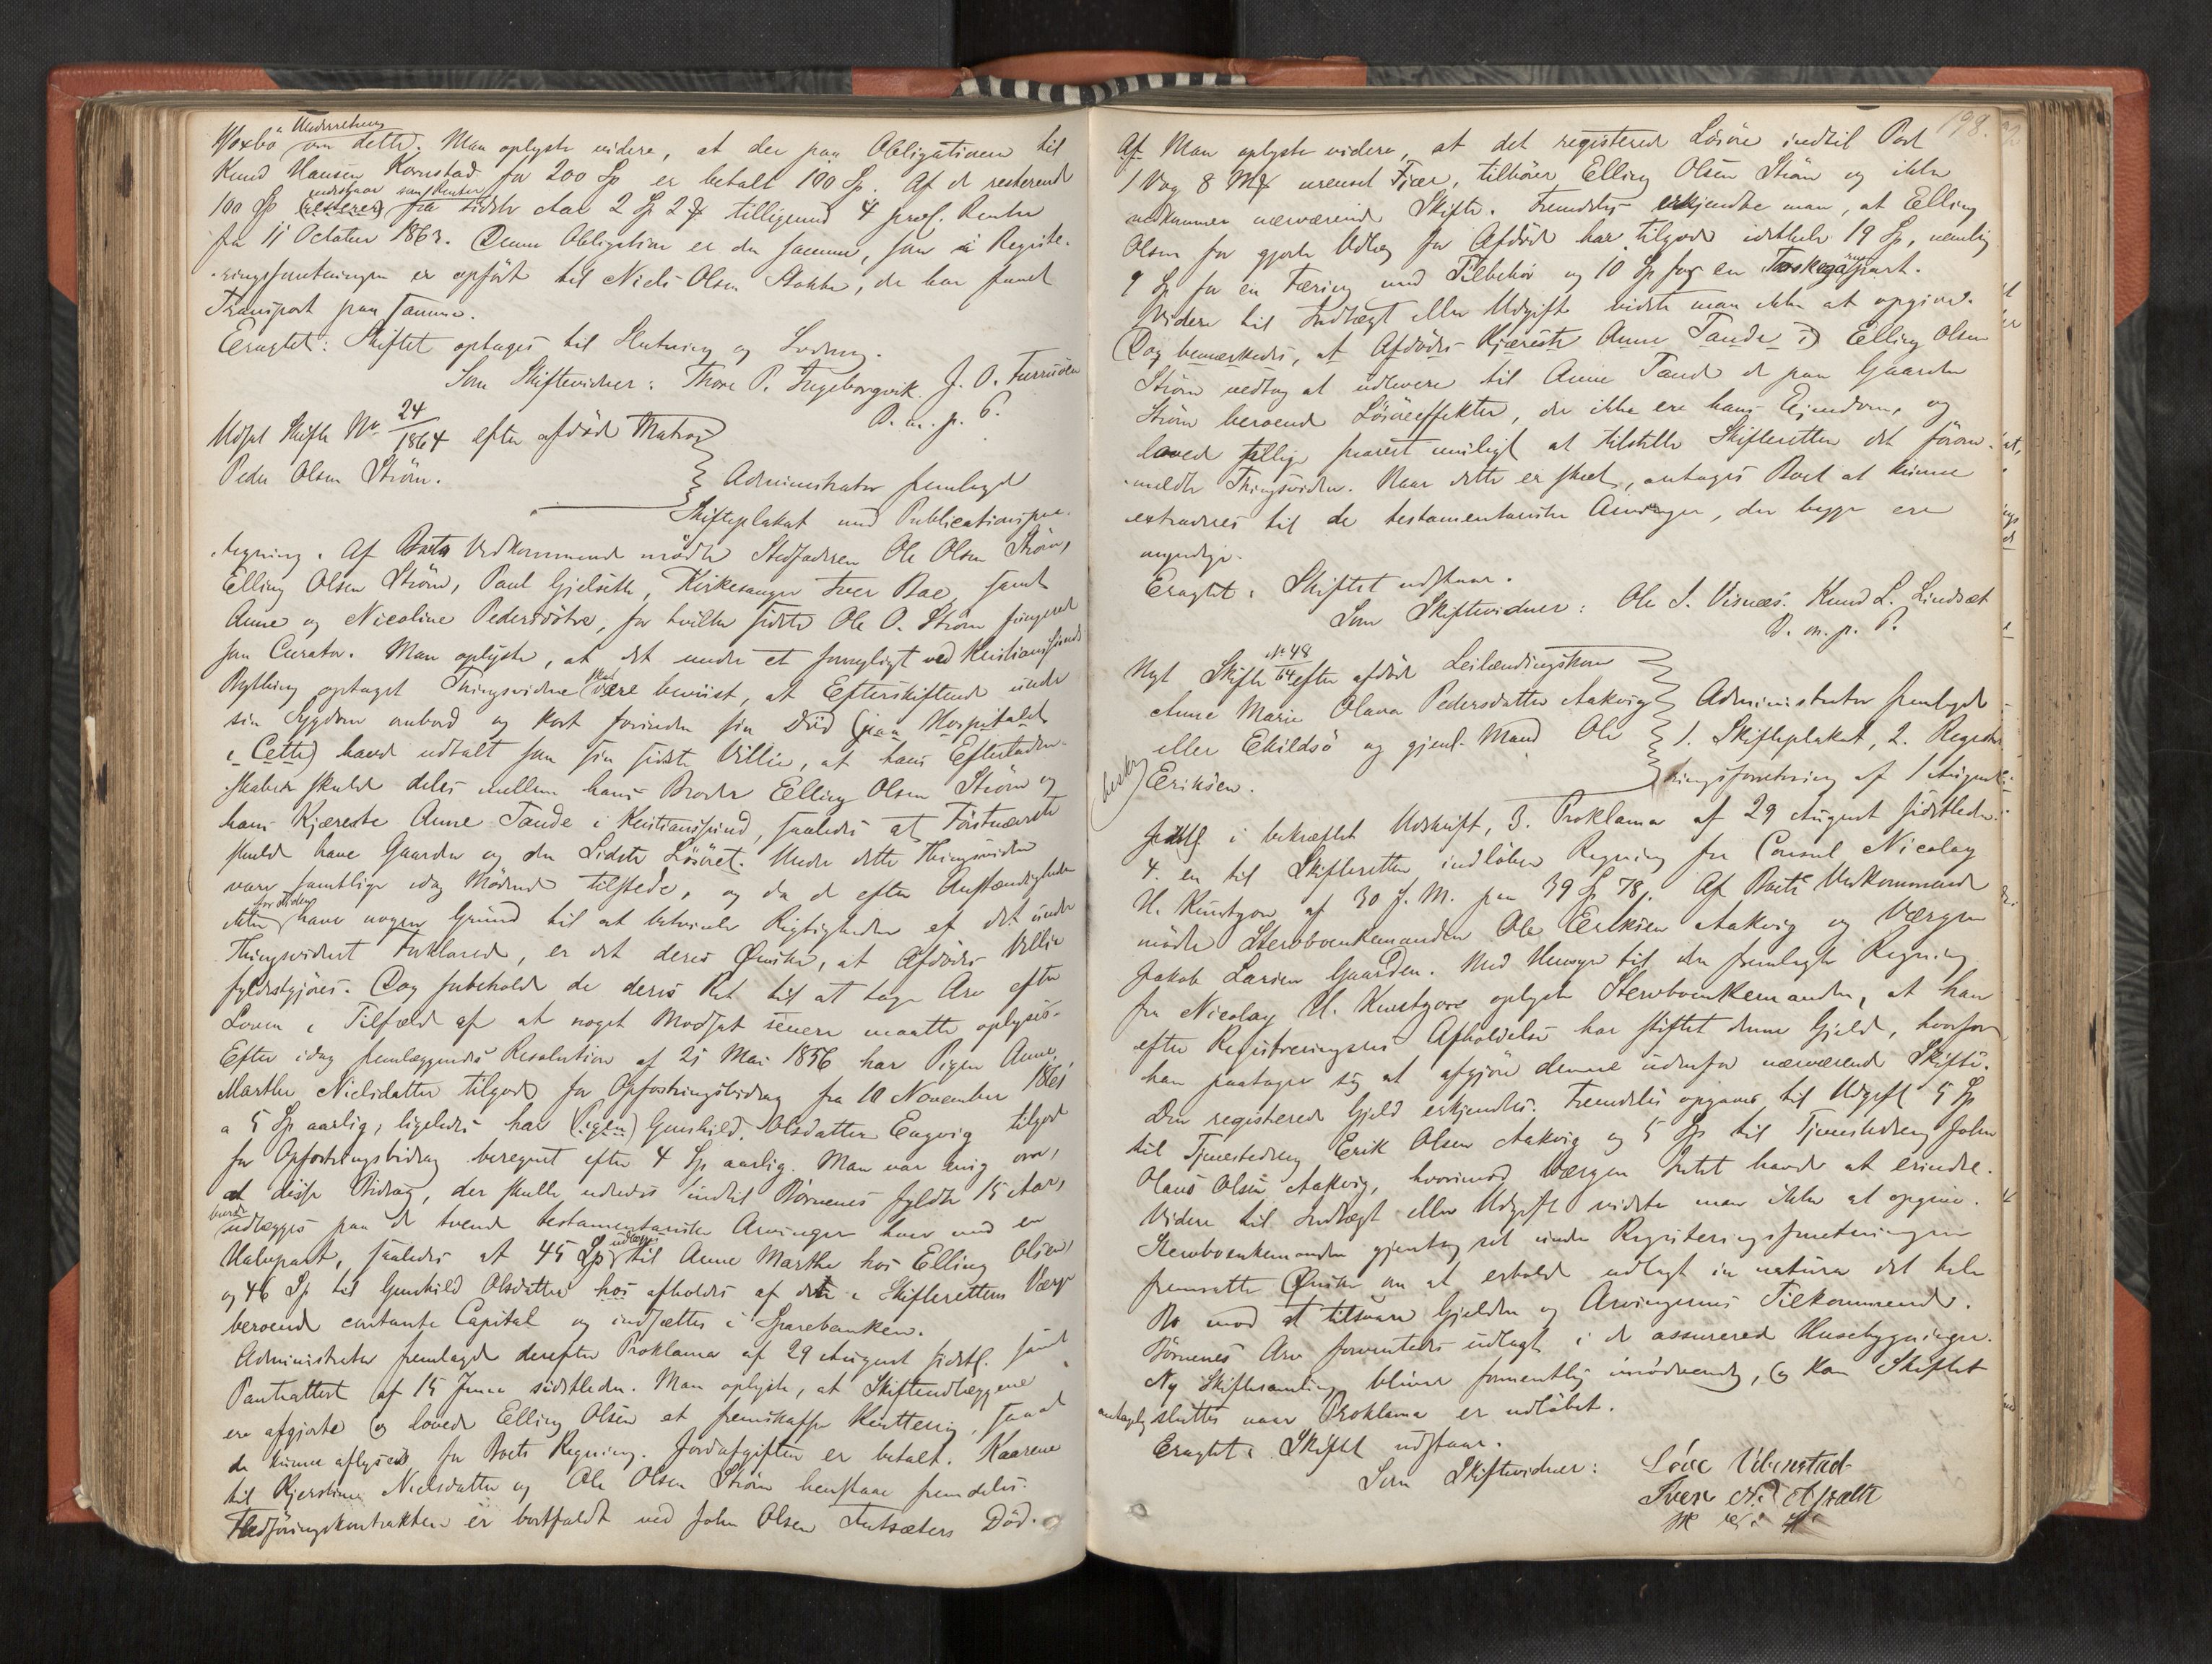 Underretning
Woxbö om dette. Man oplyste videre, at der paa Obligationen til
Knud Hansen Kornstad for 200 Sp er betalt 100 Sp. Af de resterende
indestaar som Renter
100 Sp (resterer) fra sidste Aar 2 Sp 2 tilligemed 4 proc. Rente
fra 11 October 1863. Denne Obligation er den samme, som i Registe-
ringsforretningen er opført til Niels Olsen Stokke, der har faaet
Transport paa samme.
Eragtet: Skiftet optages til Slutning og Lodning.
Som Skiftevidner: Thore P. Ingeborgvik. J. O. Furruöen
M. m. p. P.
Udsat Skifte No 24/1864 efter afdöde Matros
Peder Olsen Ström.
Administrator fremlagde
Skifteplakat med Publicationspaa-
tegning. Af Boets Vedkommende mödte Stedfaderen Ole Olsen Ström,
Elling Olsen Ström, Paul Gjelseth, Kirkesanger Iver Boe, samt
Anne og Nicoline Pedersdötre, for hvilke sidste Ole O. Ström fungerede
som Curator. Man oplyste, at det under et formeligt ved Kristianssunds
skal
Bything optaget Thingsvidne være beviist, at Efterskiftende under
sin Sygdom ombord og kort forinden sin Död (paa Hospitalet
i Cette) havde udtalt som sin sidste Villie, at hans Efterladen-
skaber skulde deles mellem hans Broder Elling Olsen Ström og
hans Kjæreste Anne Tande i Kristianssund, saaledes at Förstnævnte
skulde have Gaarden og den Sidste Lösöret. Under dette Thingsvidne
vare samtlige idag Mödende tilstede, og da de efter Omstændighederne
formeder
ikke have nogen Grund til at betvivle Rigtigheden af det under
Thingsvidnet Forklarede, er det deres Ønske, at Afdödes Villie
fyldestgjöres. Dog forbeholdt de deres Ret til at tage Arv efter
Loven i Tilfælde af at noget Modsat senere maatte oplyses.
Efter idag fremlæggende Resolution af 21 Mai 1856 har Pigen Anne
Marthe Nielsdatter tilgode for Opfostringsbidrag fra 10 November 1861
a 5 Sp aarlig; ligeledes har (igjen) Gunhild Olsdatter Engvig tilgode
for Opfostringsbidrag beregnet efter 4 Sp aarlig. Man var enig om,
at disse Bidrag, der skulle udredes indtil Börnenes fyldte 15 Aar,
burde
udlægges paa de tvende testamentariske Arvinger hver med en
udlægges
Halvpart, saaledes at 45 Sp til Anne Marthe hos Elling Olsen,
og 46 Sp til Gunhild Olsdatter hos afholdes af det i Skifterettens Værge
beroende contante Capital og indsættes i Sparebanken.
Administrator fremlagde derefter Proklama af 29 August sidstl. samt
Panteattest af 15 Juni sidstleden. Man oplyste, at Skifteudlæggene
ere afgjorte og lovede Elling Olsen at fremskaffe Kvittering, saa at
de kunne aflyses for Boets Regning. Jordafgiften er betalt. Kaarene
til Kjerstine Nielsdatter og Ole Olsen Ström henstaae fremdeles.
Flødföringskontrakten er bortfaldt ved John Olsen Indsæters Död.
198.
Af Man oplyste videre, at det registerede Lösöre indtil Post
1 Vog 8 Mk urenset Fjær, tilhörer Elling Olsen Ström og ikke
vedkommer nærværende Skifte. Fremdeles erkjendte man, at Elling
Olsen for gjorte Udlæg for Afdöde har tilgode idethele 19 Sp, nemlig
9 Sp for en Færing med Tilbehör og 10 Sp for en Torskegarnpart.
Videre til Indtægt eller Udgift vidste man ikke at opgive.
(Dog bemærkedes, at Afdödes Kjæreste Anne Tande i) Elling Olsen
Ström vedtog at udlevere til Anne Tande de paa Gaarden
Ström beroende Lösöreeffekter, der ikke ere hans Eiendom, og
lovede tillige snarest muligt at tilstille Skifteretten det foran-
meldte Thingsvidne. Naar dette er skeet, antages Boet at kunne
extraderes til de testamentariske Arvinger, der begge ere
myndige.
Eragtet: Skiftet udstaar.
Som Skiftevidner: Ole I. Visnæs. Knud L. Lindsæt
M. m. p. P.
Nyt Skifte No 48/64 efter afdöde Leilændingskone
Anne Marie Olava Pedersdatter Aakvig
eller Ekildsö og gjenl. Mand Ole
Eriksen.
beskr
Administrator fremlagde
1. Skifteplakat, 2. Registe-
ringsforretning af 1 August
sidstl i bekræftet Udskrift, 3. Proklama af 29 August sidstleden.
4. en til Skifteretten indlöben Regning fra Consul Nicolay
H. Knutzon af 30 f. M. paa 39 Sp 78. Af Boets Vedkommende
mödte Stervboenkemanden Ole Eriksen Aakvig og Værgen
Jakob Larsen Gaarden. Med Hensyn til den fremlagte Regning
fra Nicolay H. Knutzon oplyste Stervboenkemanden, at han
efter Registreringens Afholdelse har stiftet denne Gjeld, hvorfor
han paatager sig at afgjöre denne udenfor nærværende Skifte.
Den registrerede Gjeld erkjendtes. Fremdeles opgaves til Udgift 5 Sp
til Tjenestedreng Erik Olsen Aakvig og 5 Sp til Tjenestedreng John
Olaus Olsen Aakvig, hvorimod Værgen Intet havde at erindre.
Videre til Indtægt eller Udgift vidste man ikke at opgive.
Stervboenkemanden gjentog sit under Registeringsforretningen
fremsatte Ønske om at erholde udlagt in natura det hele
Bo mod at tilsvare Gjelden og Arvingernes Tilkommende.
Börnenes Arv forventedes udlagt i de assurerede Husebygninger.
Ny Skiftesamling bliver formentlig unödvendig, og kan Skiftet
antagelig sluttes naar Proklama er udlöbet.
Eragtet: Skiftet udstaar.
Som Skiftevidner: